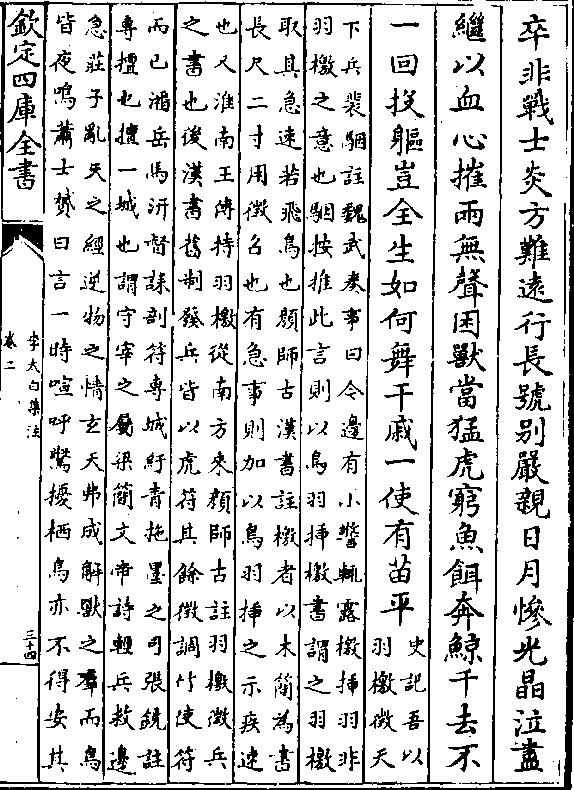 卒非戰士炎方難遠行長號别嚴親日月慘光晶泣盡
繼以血心摧兩無聲困獸當猛虎窮魚餌奔鯨千去不
一回投軀豈全生如何舞干戚一使有苗平
史記吾以
羽檄徴天
下兵裴駰註魏武奏事曰令邊有小警輒露檄挿羽非
羽檄之意也駰按推此言則以鳥羽挿檄書謂之羽檄
取其急速若飛鳥也顔師古漢書註檄者以木簡為書
長尺二寸用徴召也有急事則加以鳥羽挿之示疾速
也又淮南王傳持羽檄從南方來顔師古註羽檄徴兵
之書也後漢書舊制發兵皆以虎符其餘徴調竹使符
而已潘岳馬汧督誄剖符專城紆青拖墨之司張銑註
專擅也擅一城也謂守宰之屬梁簡文帝詩輕兵救邊
急莊子亂天之經逆物之情玄天弗成解獸之羣而鳥
皆夜鳴蕭士贇曰言一時喧呼驚擾栖鳥亦不得安其
欽定四庫全書
李太白集注
卷二
三十四